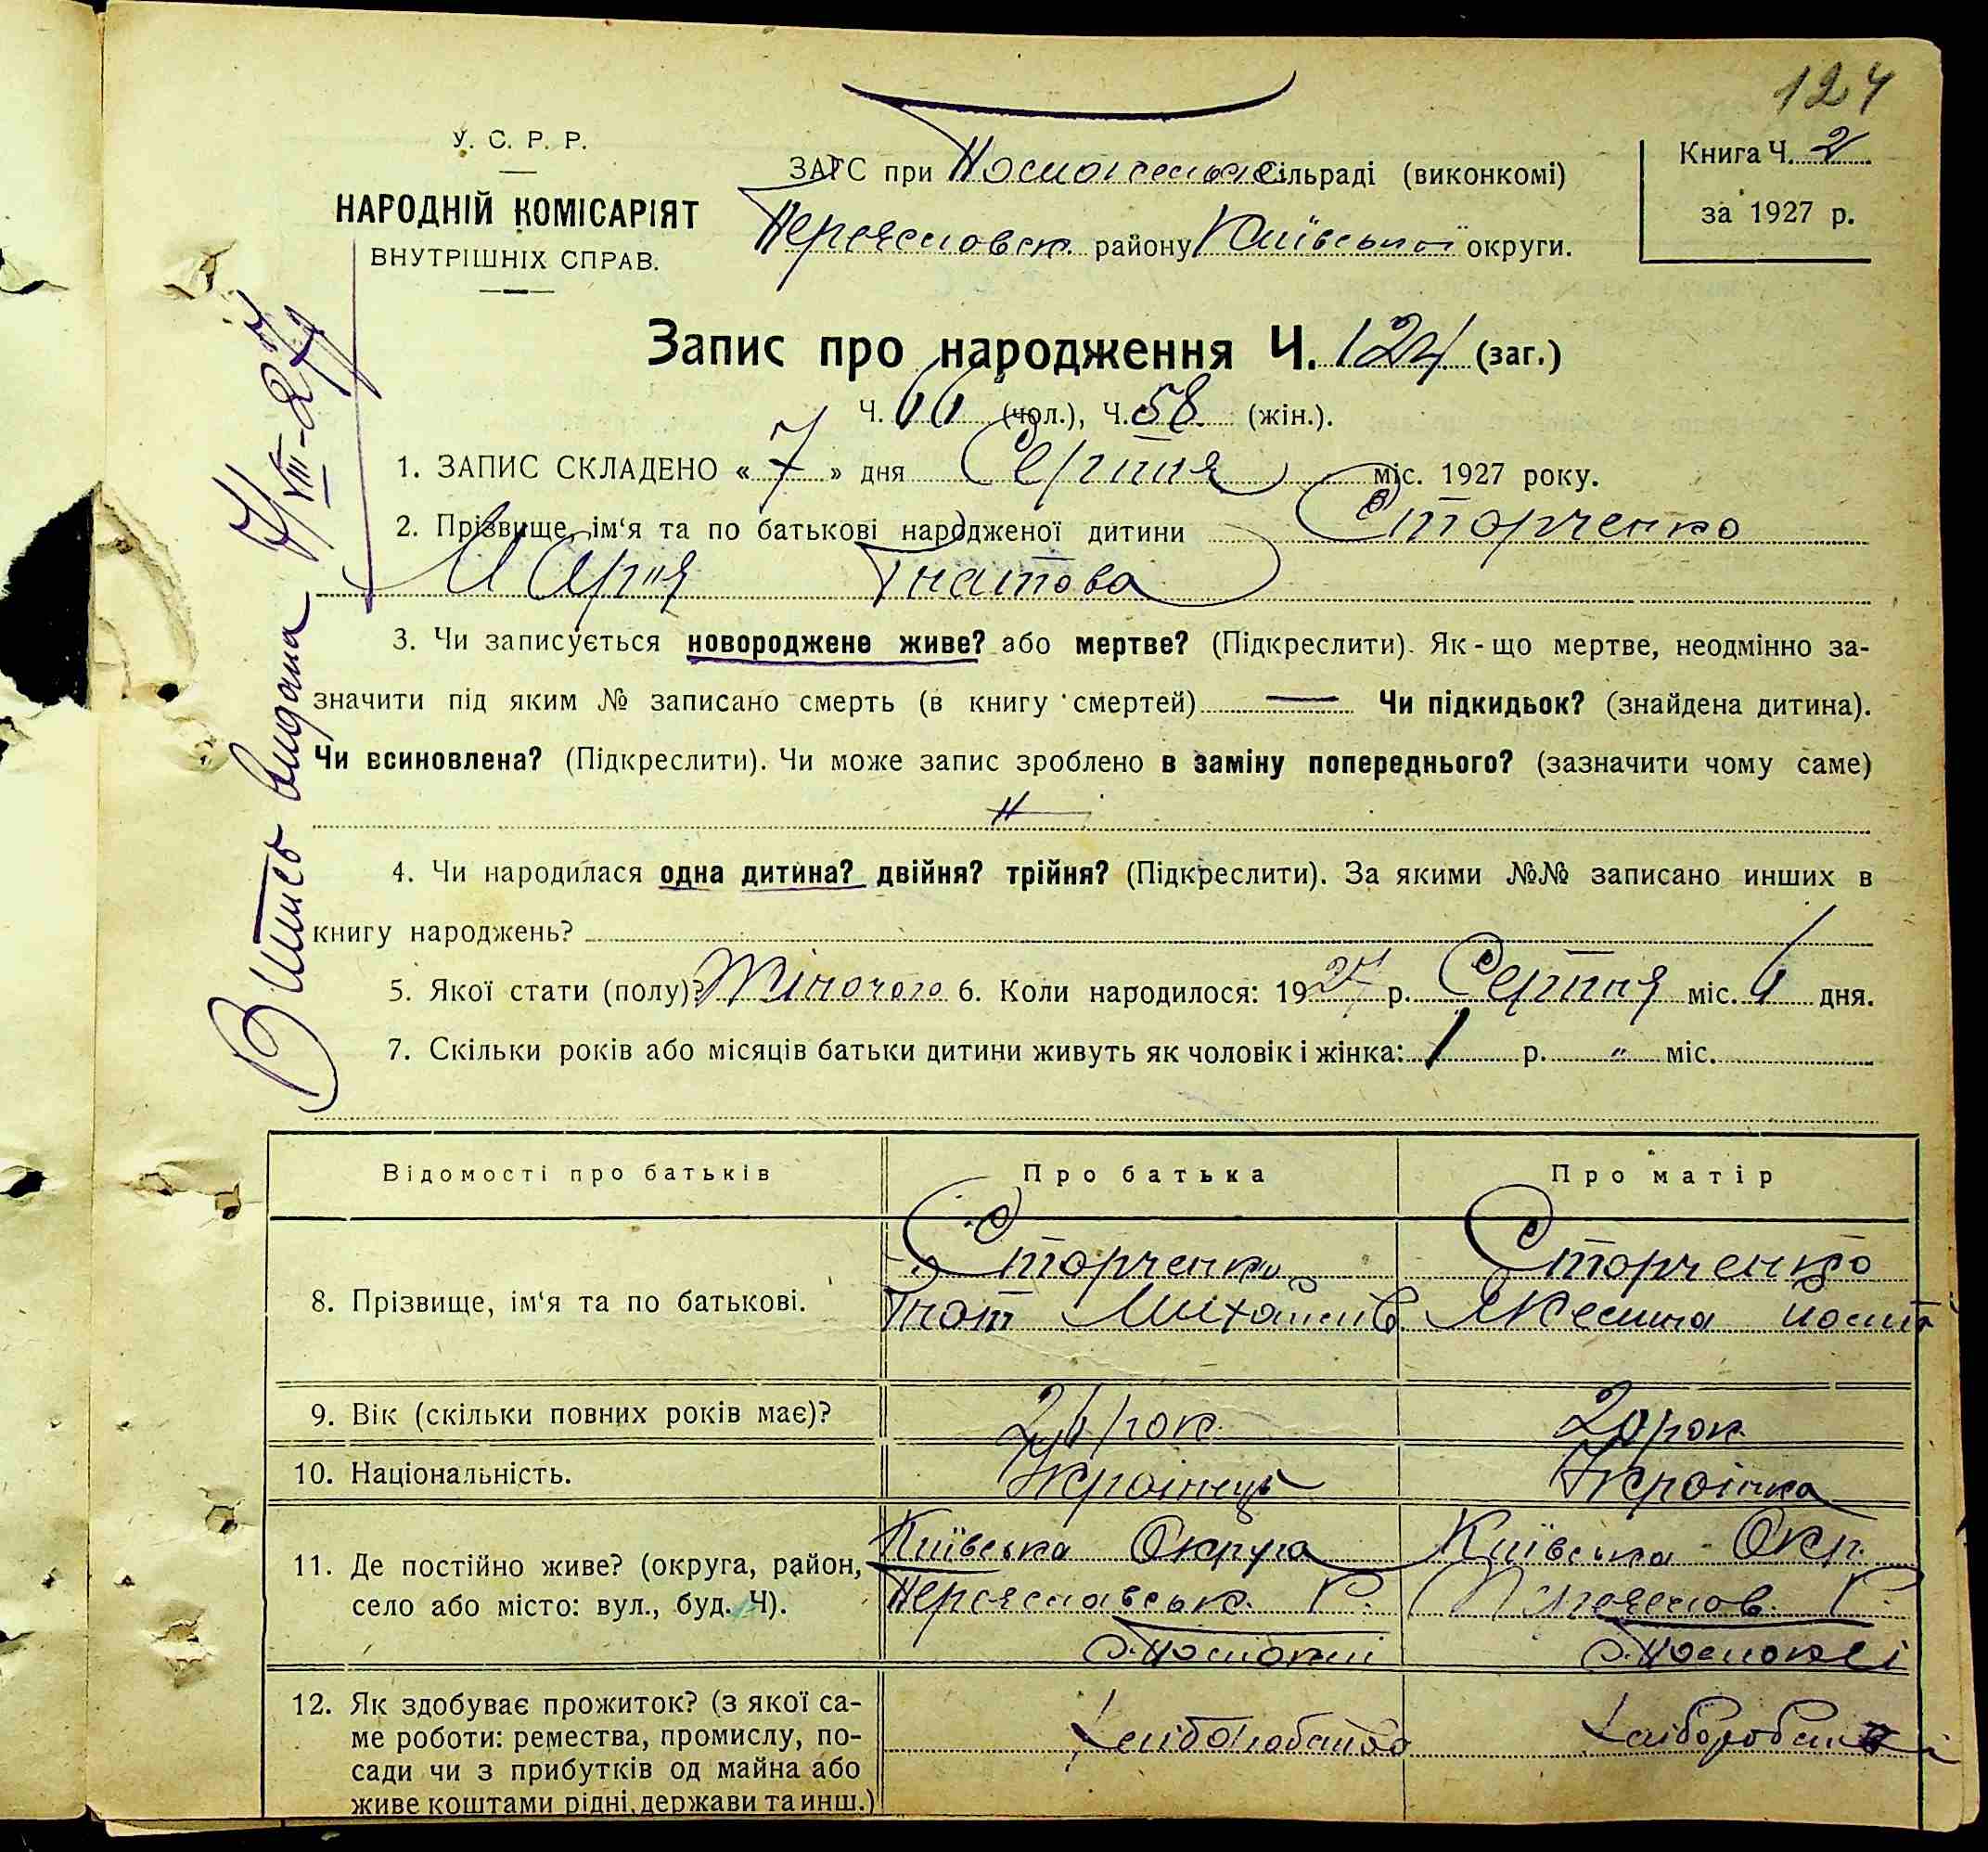 124
У. С. Р. Р.
НАРОДНІЙ КОМІСАРІЯТ
ВНУТРІШНІХ СПРАВ.
ЗАГС при сільраді (виконкомі)
Переяславськ. району Київської округи.
Книга Ч. 2
за 1927 р.
Запис про народження Ч. 124 (заг.)
Ч. 66 (чол.), Ч. 58 (жін.).
1. ЗАПИС СКЛАДЕНО « 7 » дня Серпня міс. 1927 року.
2. Прізвище, ім‘я та по батькові народженої дитини Сторченко
Марія Гнатова
3. Чи записується новороджене живе? або мертве? (Підкреслити). Як - що мертве, неодмінно за-
значити під яким № записано смерть (в книгу смертей) — Чи підкидьок? (знайдена дитина).
Чи всиновлена? (Підкреслити). Чи може запис зроблено в заміну попереднього? (зазначити чому саме)
4. Чи народилася одна дитина? двійня? трійня? (Підкреслити). За якими №№ записано инших в
книгу народжень?
5. Якої стати (полу)? Жіночого 6. Коли народилося: 1927 р. Серпня міс. 6 дня.
7. Скільки років або місяців батьки дитини живуть як чоловік і жінка: 1 р. " міс.
Випись видана 7/VIII-27
Відомості про батьків Про батька Про матір
8. Прізвище, ім‘я та по батькові.
Сторченко
Гнат Михайлів
Сторченко
Яксенина Йосип
9. Вік (скільки повних років має)? 26 рок. 20 рок.
10. Національність. Українець Українка
11. Де постійно живе? (округа, район,
село або місто: вул., буд. Ч).
Київська Округа
Переяславськ. Р.
Київська Окр.
Переяслов. Р.
12. Як здобуває прожиток? (з якої са-
ме роботи: ремества, промислу, по-
сади чи з прибутків од майна або
живе коштами рідні, держави та инш.)
Хлібороб
Хлібороб